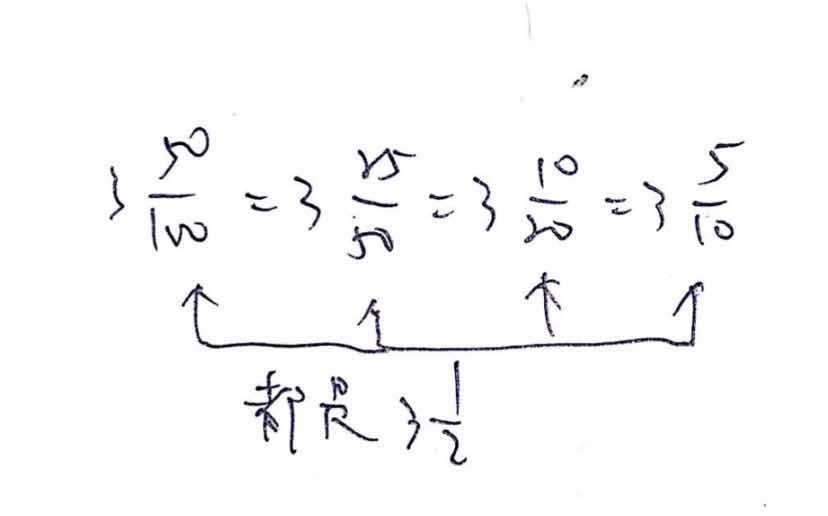 3 50/100 = 3 25/50 = 3 10/20 = 3 5/10
都是 3 1/2